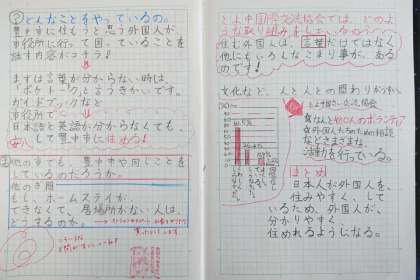 ①どんなことをやっているの。
豊中市に住もうと思う外国人が
市役所に行って困っていることを
話す内容はそう!
まずは言葉が分からない時は、
「ポケトーク」というきかいです。
ガイドブックなど
市役所で
日本語と英語が分からなくても、
して豊中市には
②他の市でも、豊中市や同じことを
しているのだろうか。
他のき問
もし、ホームステイが
できなくて、居場所がない人は、
どうするのか。
とよ中国際交流協会では、どのよ
うな取り組みをしているのだろう
住む外国人は、言葉だけではなく
他にもいろんなこまり事が、ある
のです!
文化など、人と人との関わりが
とよ中国さい交流協会
☆外国人のための相談
などさまざまな、
活動を行っている。
まとめ
日本人が外国人を、
住みやすく、して
いるため、外国人が、
分かりやすく
住めれるようになる。